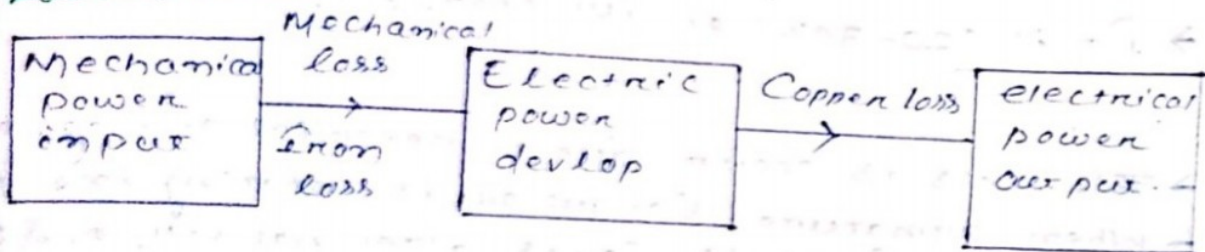 Mechanical
power
input
Mechanical
loss
Iron
loss
Electric
power
devlop
Copper loss
electrical
power
output.